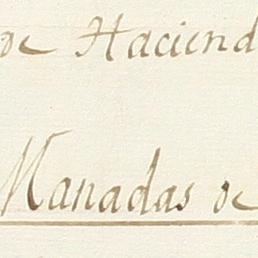 de Haciend
Manadas de